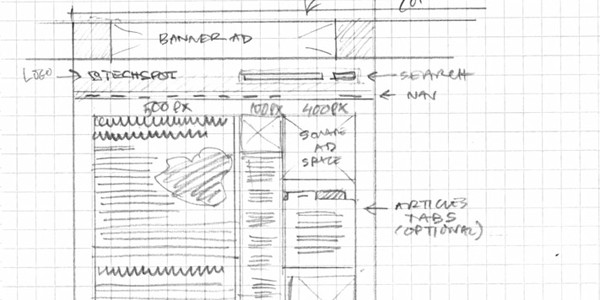 BANNER AD
LOGO
TECHSPOT
SEARCH
NAV
500PX
100PX
400PX
SQUARE
AD
SPACE
ARTICLES
TABS
(OPTIONAL)